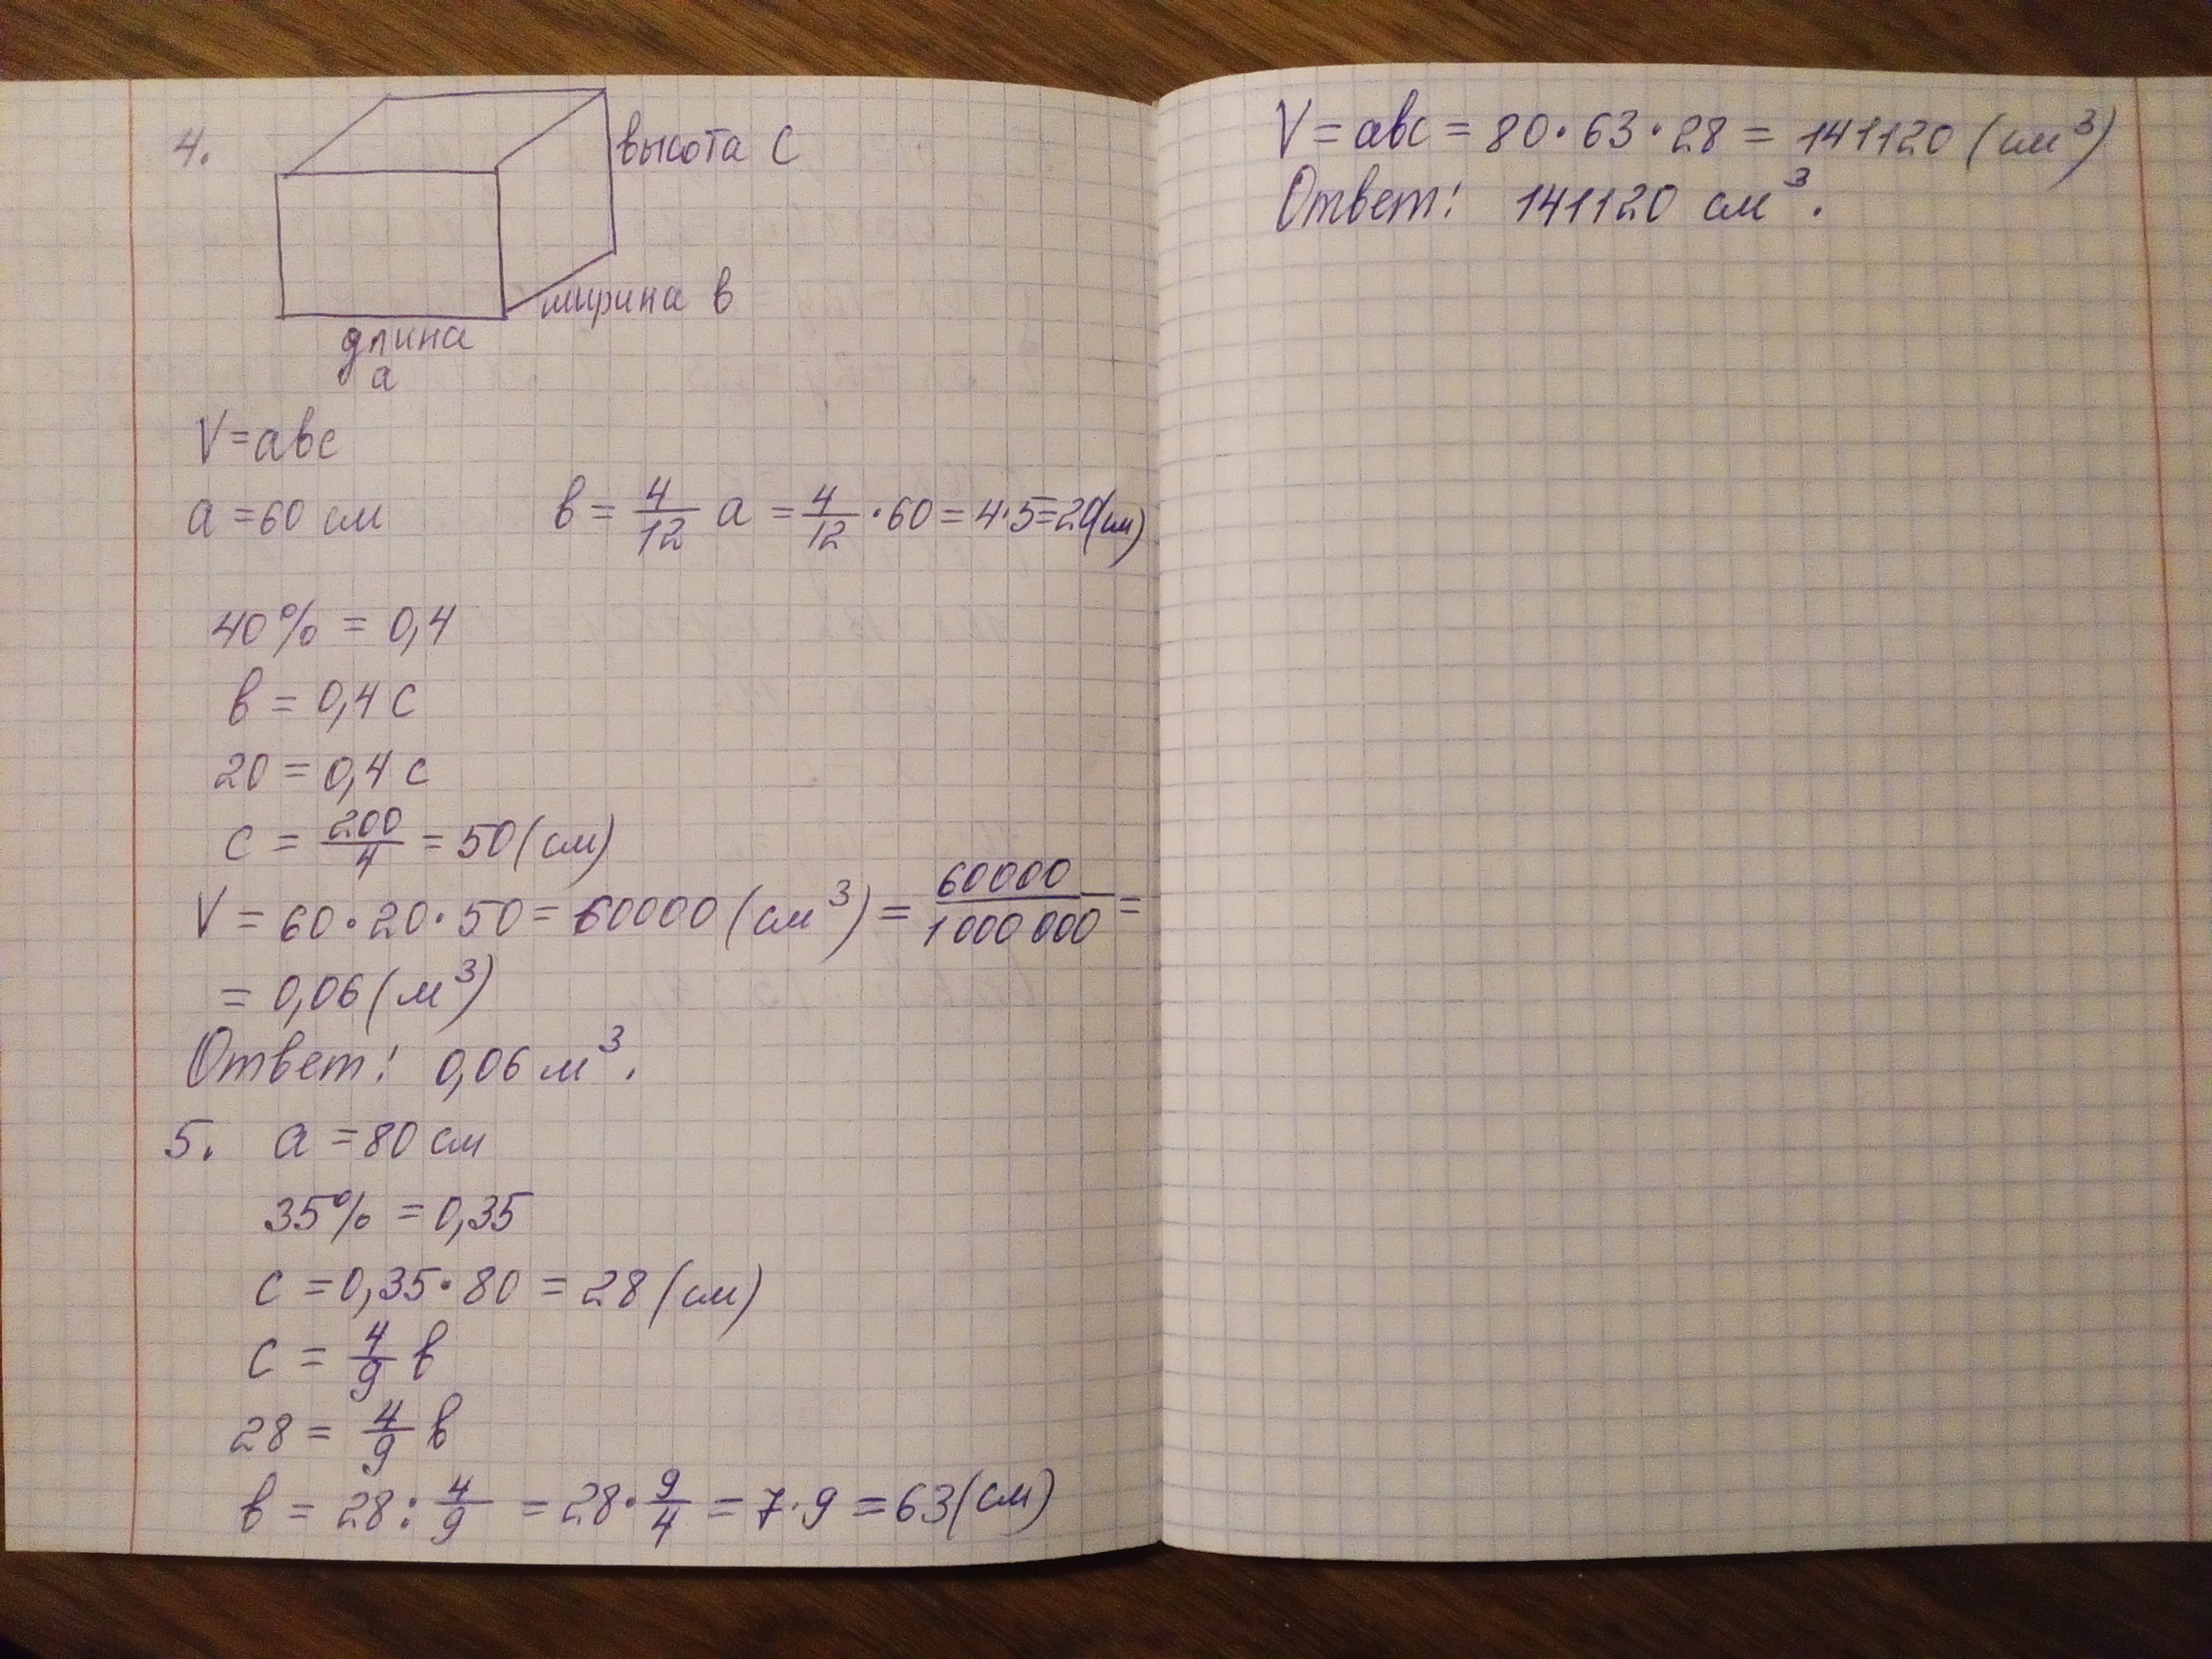 4.
высота c
ширина в
длина
а
V=авс
а=60 см в = 4/12 а = 4/12 · 60 = 4·5=20(см)
40% = 0,4
в = 0,4 с
20 = 0,4 с
с = 200/4 = 50 (см)
V = 60 · 20 · 50 = 60000 (см³) = 60000/1000 000 =
= 0,06 (м³)
Ответ: 0,06 м³.
5. а = 80 см
35% = 0,35
с = 0,35 · 80 = 28 (см)
с = 4/9 в
28 = 4/9 в
в = 28 : 4/9 = 28 · 9/4 = 7·9 = 63 (см)
V = авс = 80 · 63 · 28 = 141120 (см³)
Ответ: 141120 см³.